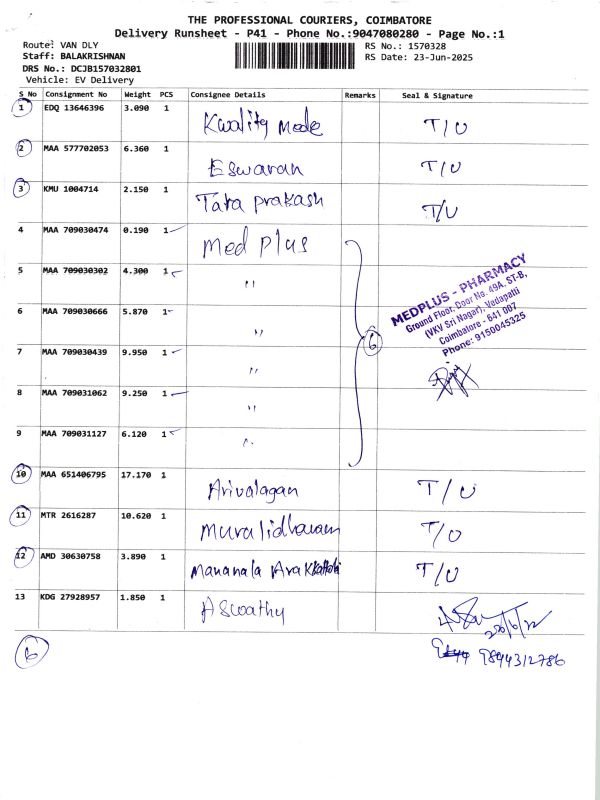 THE PROFESSIONAL COURIERS, COIMBATORE
Delivery Runsheet - P41 - Phone No.:9047080280 - Page No.:1
Route: VAN DLY
RS No.: 1570328
Staff: BALAKRISHNAN
RS Date: 23-Jun-2025
DRS No.: DCJB157032801
Vehicle: EV Delivery
S No Consignment No Weight PCS Consignee Details Remarks Seal & Signature
1 EDQ 13646396 3.090 1 Kwality Mode T/U
2 MAA 577702053 6.360 1 Eswaran T/U
3 KMU 1004714 2.150 1 Tara prakash T/U
4 MAA 709030474 0.190 1 Med Plus
5 MAA 709030302 4.300 1 "
6 MAA 709030666 5.870 1 "
7 MAA 709030439 9.950 1 "
8 MAA 709031062 9.250 1 "
9 MAA 709031127 6.120 1 "
6
MEDPLUS - PHARMACY
Ground Floor, Door No. 49A, ST-B,
(VKV Sri Nagar), Vedapatti
Coimbatore - 641 007
Phone: 9150045325
10 MAA 651406795 17.170 1 Arivalagan T/U
11 MTR 2616287 10.620 1 Muralidharan T/U
12 AMD 30630758 3.890 1 T/U
13 KDG 27928957 1.850 1 Aswathy
6
9894312786